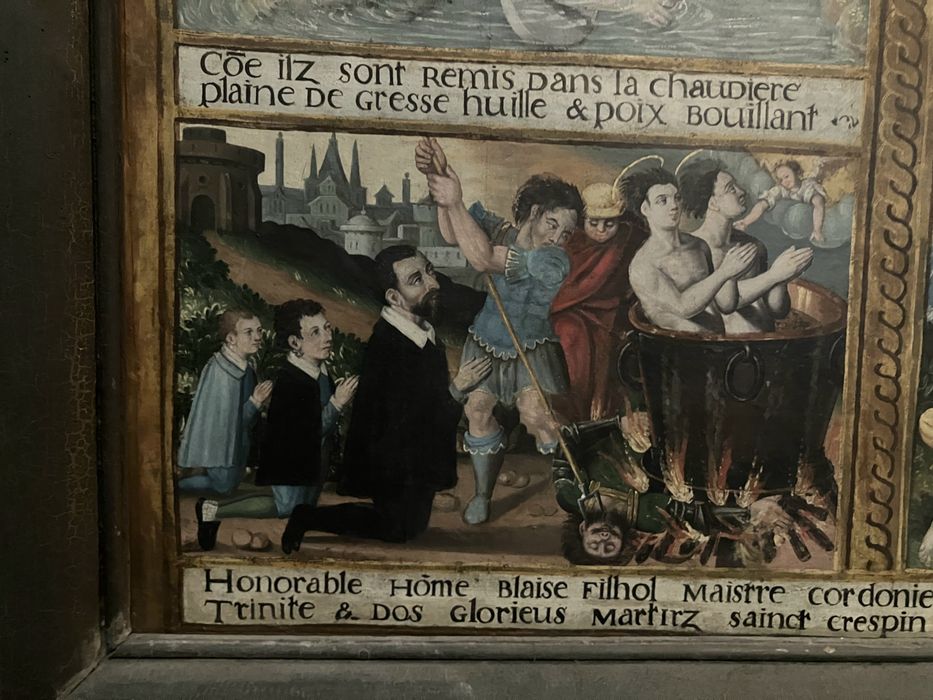 Cōe ilz sont Remis Dans la chaudiere
plaine De Gresse huille & poix Bouillant
Honorable Hōme Blaise Filhol Maistre cordonie
Trinite & Dos Glorieus Martirz sainct crespin